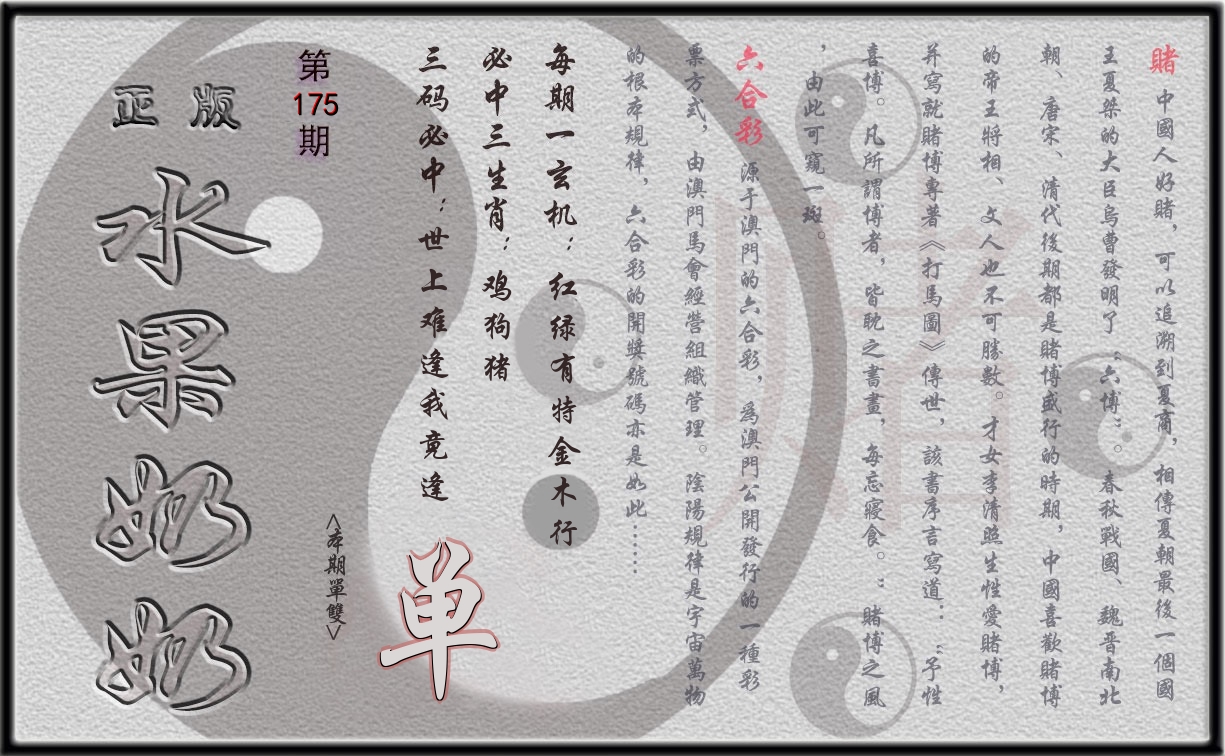 賭 中國人好賭，可以追溯到夏商，相傳夏朝最後一個國
王夏桀的大臣烏曹發明了“六博”。春秋戰國、魏晋南北
朝、唐宋、清代後期都是賭博盛行的時期，中國喜歡賭博
的帝王將相、文人也不可勝數。才女李清照生性愛賭博，
并寫就賭博專著《打馬圖》傳世，該書序言寫道：“予性
喜博。凡所謂博者，皆耽之書畫，每忘寢食。”賭博之風
，由此可窺一斑。
六合彩 源于澳門的六合彩，爲澳門公開發行的一種彩
票方式，由澳門馬會經營組織管理。陰陽規律是宇宙萬物
的根本規律，六合彩的開獎號碼亦是如此……
每期一玄机：红绿有特金木行
必中三生肖：鸡狗猪
三码必中：世上难逢我竟逢
单
<本期單雙>
第175期
正版
水果奶奶
賭